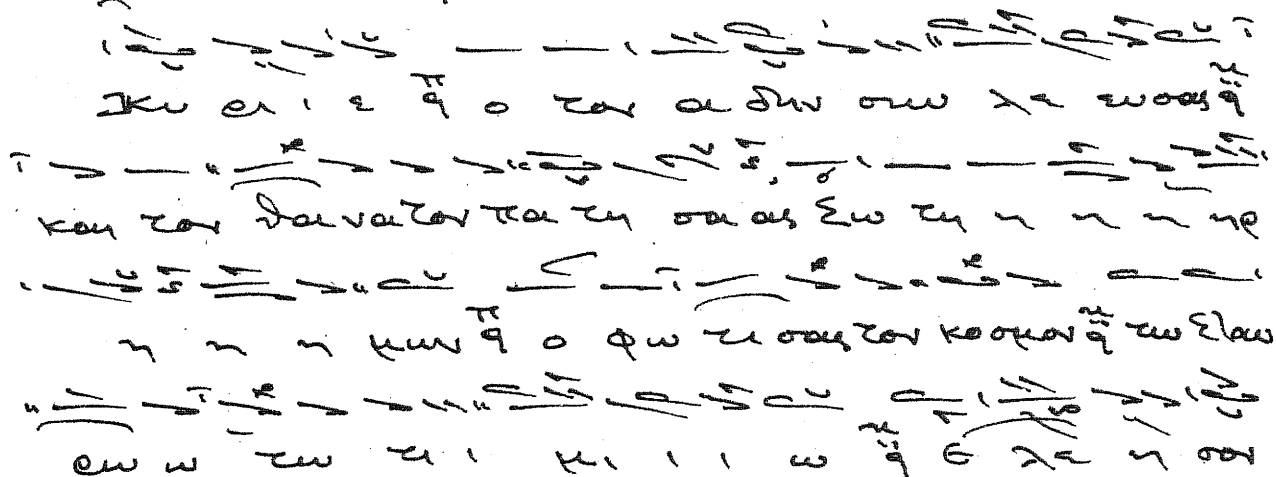 Κυ ρι ι ε ο τον α δην σκυ λε ευσας
και τον θα να τον πα τη σα ας Σω τη η η η ηρ
η η η μων ο φω τι σας τον κοσμον τω Σταυ
ρω ω τω τι ι μι ι ι ω Ε λε η σον